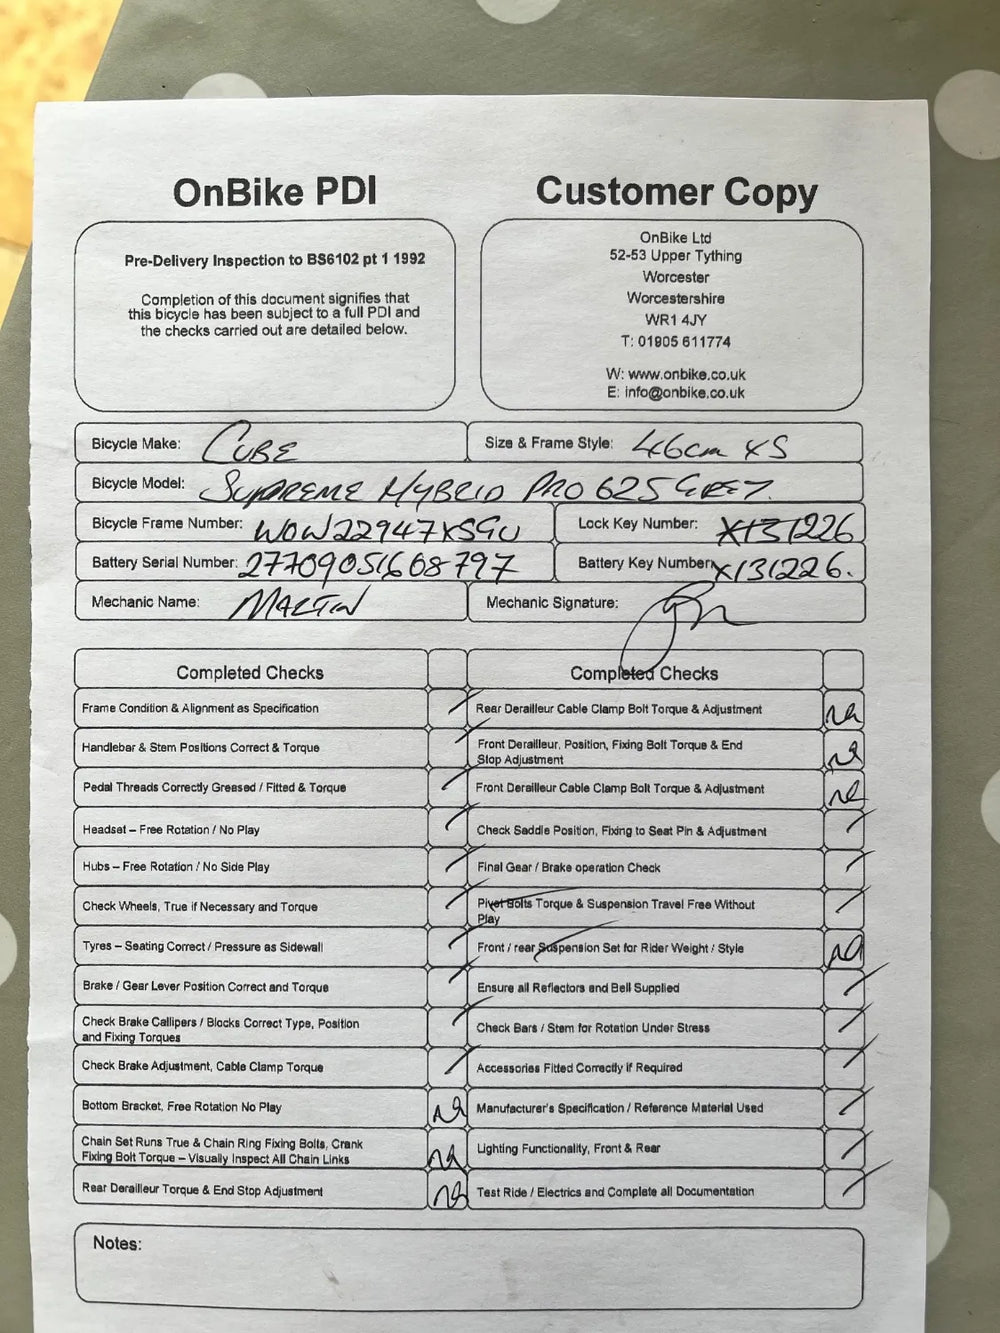 OnBike PDI
Customer Copy
Pre-Delivery Inspection to BS6102 pt 1 1992
Completion of this document signifies that
this bicycle has been subject to a full PDI and
the checks carried out are detailed below.
OnBike Ltd
52-53 Upper Tything
Worcester
Worcestershire
WR1 4JY
T: 01905 611774
W: www.onbike.co.uk
E: info@onbike.co.uk
Bicycle Make: CUBE
Size & Frame Style: 46cm XS
Bicycle Model: SUPREME HYBRID PRO 625 GREY.
Bicycle Frame Number: WOW22947XSGU
Lock Key Number: X131226
Battery Serial Number: 27709051608797
Battery Key Number: X131226.
Mechanic Name: MARTIN
Mechanic Signature:
Completed Checks
Completed Checks
Frame Condition & Alignment as Specification
Rear Derailleur Cable Clamp Bolt Torque & Adjustment na
Handlebar & Stem Positions Correct & Torque
Front Derailleur, Position, Fixing Bolt Torque & End
Stop Adjustment na
Pedal Threads Correctly Greased / Fitted & Torque
Front Derailleur Cable Clamp Bolt Torque & Adjustment na
Headset – Free Rotation / No Play
Check Saddle Position, Fixing to Seat Pin & Adjustment
Hubs – Free Rotation / No Side Play
Final Gear / Brake operation Check
Check Wheels, True if Necessary and Torque
Pivot Bolts Torque & Suspension Travel Free Without
Play
Tyres – Seating Correct / Pressure as Sidewall
Front / rear Suspension Set for Rider Weight / Style na
Brake / Gear Lever Position Correct and Torque
Ensure all Reflectors and Bell Supplied
Check Brake Callipers / Blocks Correct Type, Position
and Fixing Torques
Check Bars / Stem for Rotation Under Stress
Check Brake Adjustment, Cable Clamp Torque
Accessories Fitted Correctly if Required
Bottom Bracket, Free Rotation No Play na
Manufacturer's Specification / Reference Material Used
Chain Set Runs True & Chain Ring Fixing Bolts, Crank
Fixing Bolt Torque – Visually Inspect All Chain Links na
Lighting Functionality, Front & Rear
Rear Derailleur Torque & End Stop Adjustment na
Test Ride / Electrics and Complete all Documentation
Notes: